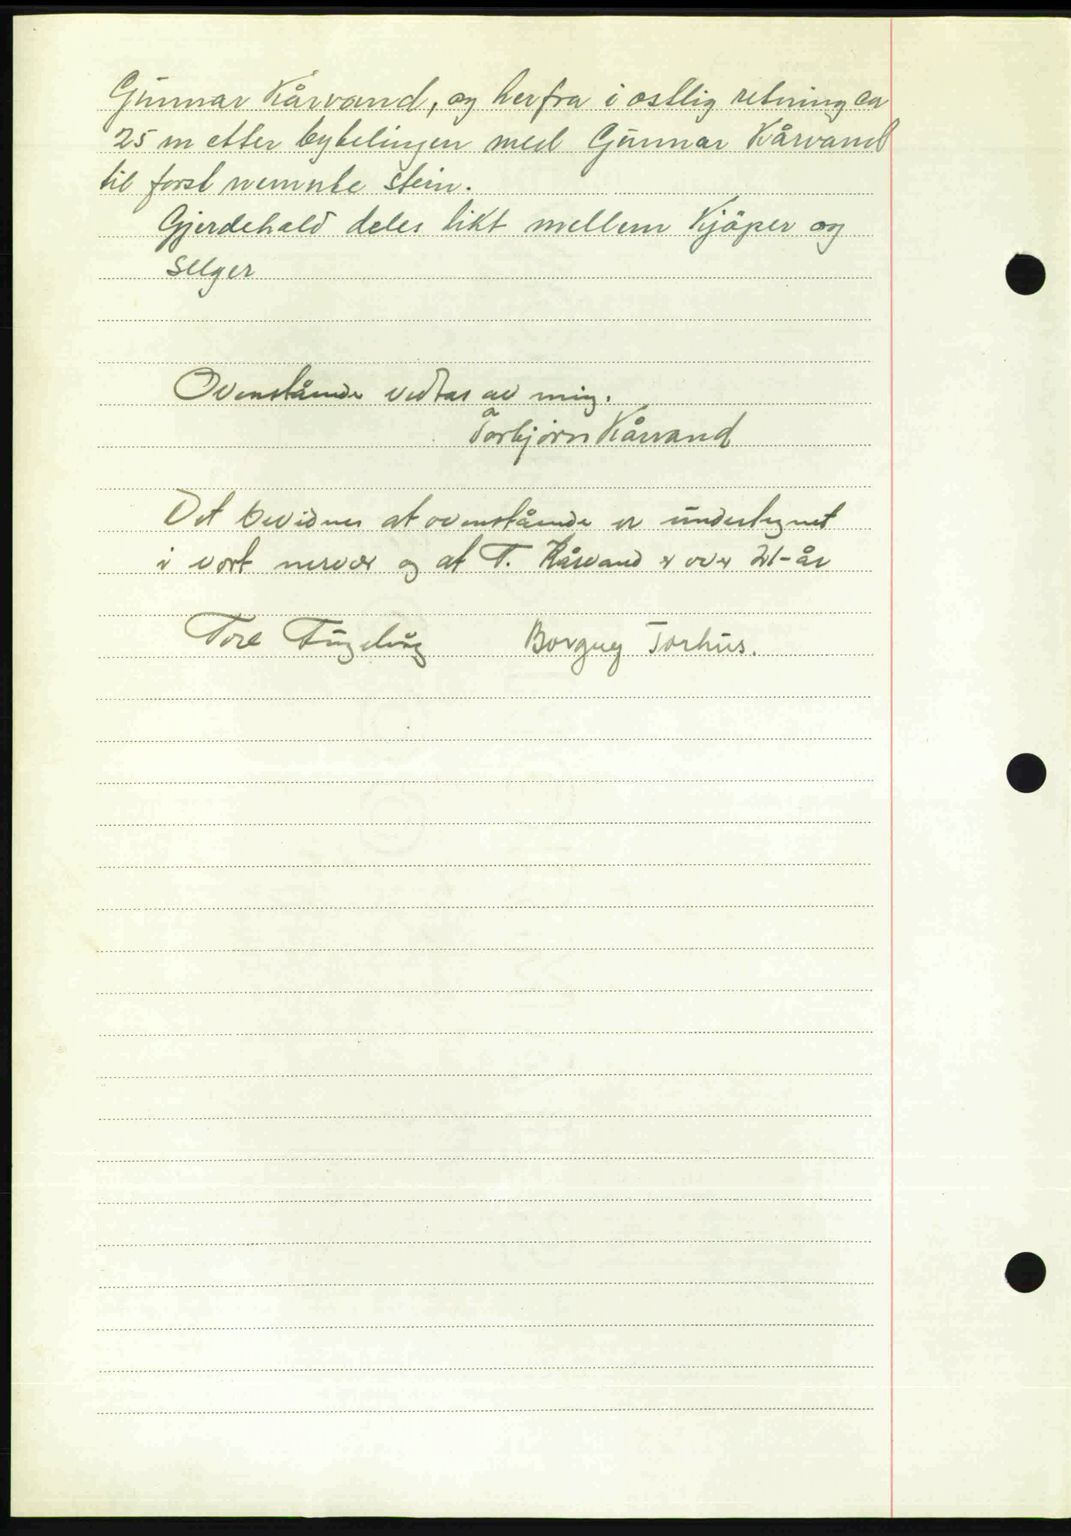 Gunnar Kårvand, og herfra i østlig retning ca
25 m etter bytelingen med Gunnar Kårvand
til først nemnte stein.
Gjerdehald deles likt mellem Kjöper og
selger
Ovenstående vedtas av mig.
Torbjørn Kårvand
Det bevidnes at ovenstående er undertegnet
i vort nervær og at T. Kårvand er over 21-år
Tore
Borgny Torhus.